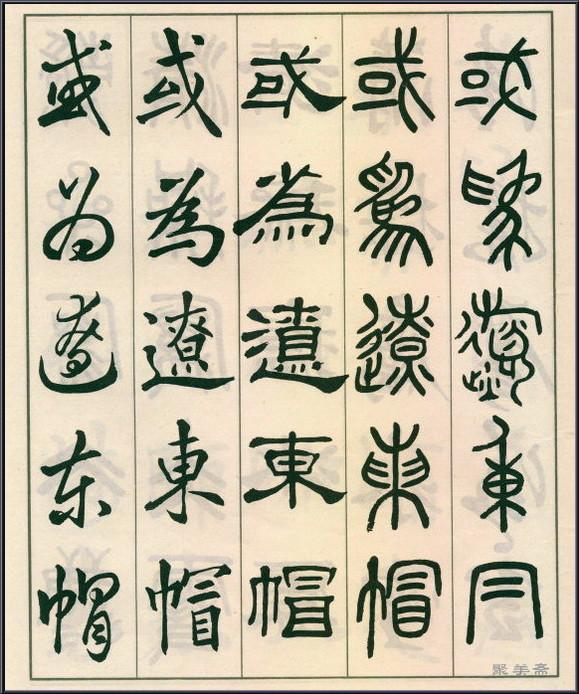 或為遼東帽
或為遼東帽
或為遼東帽
或為遼東帽
或為遼東帽
聚美斋